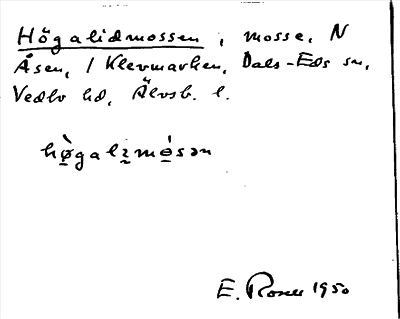 Högalidmossen, mosse, N
Åsen, / Klevmarken, Dals-Eds sn,
Vedbo hd, Älvsb. l.
hø̀galımósən
E. Rosell 1950